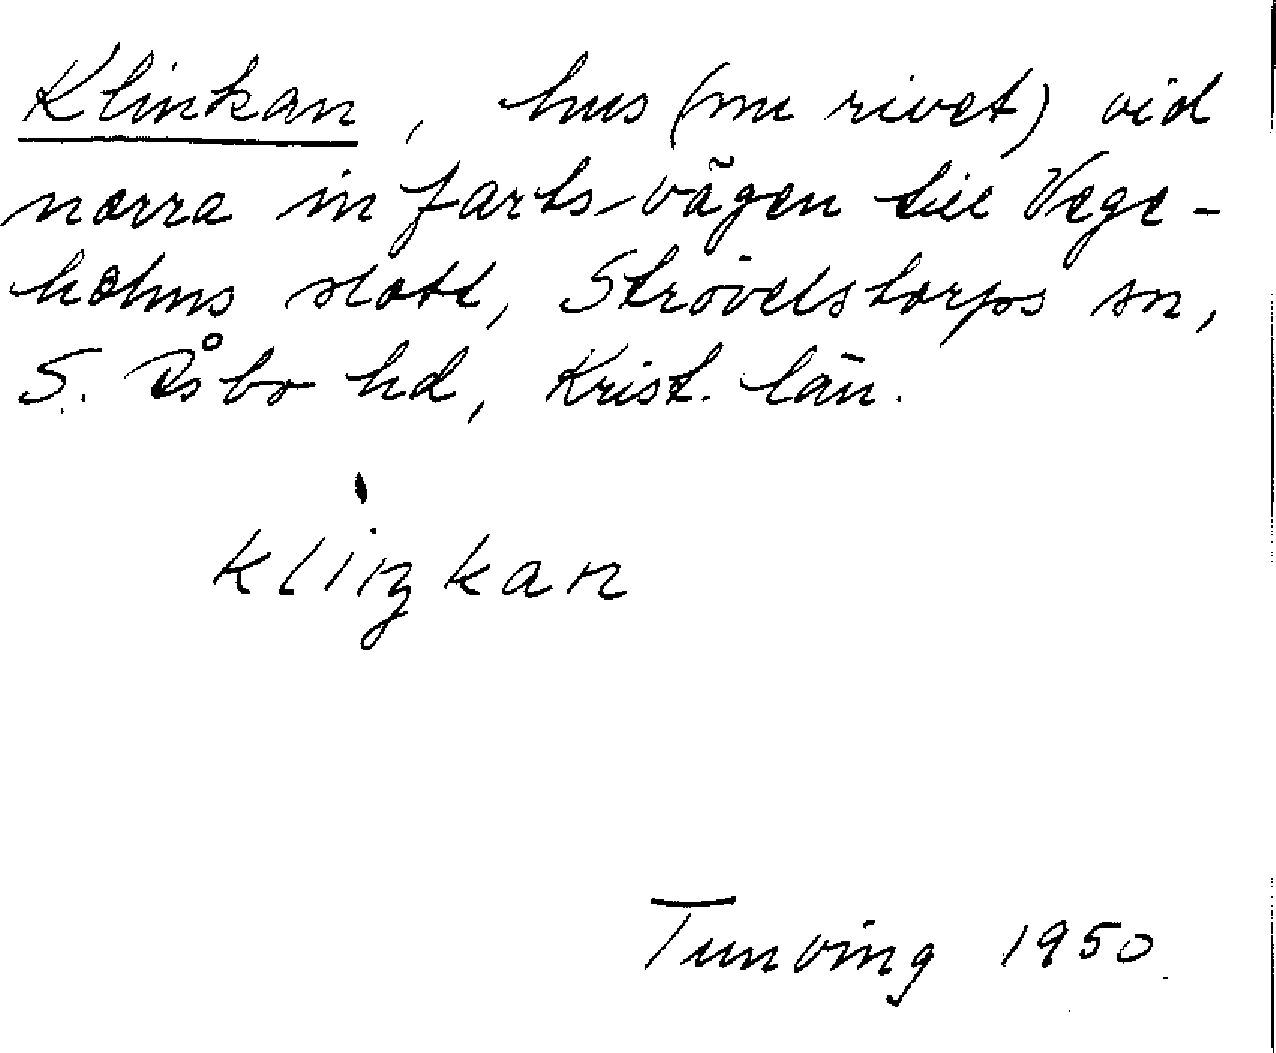 Klinkan, hus (nu rivet) vid
norra infartsvägen till Vege-
holms slott, Strövelstorps sn,
S. Åsbo hd, Krist. län.
kliŋkan
Tunving 1950